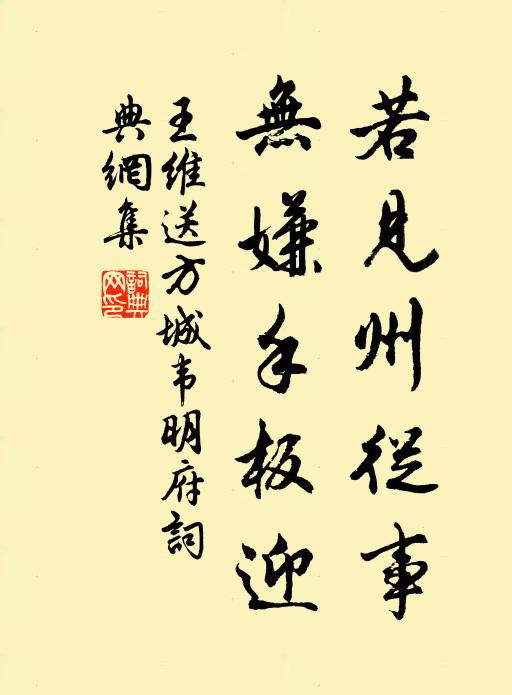 若見州從事
無嫌手板迎
王維送方城韦明府詞
典網集
詞典
网印